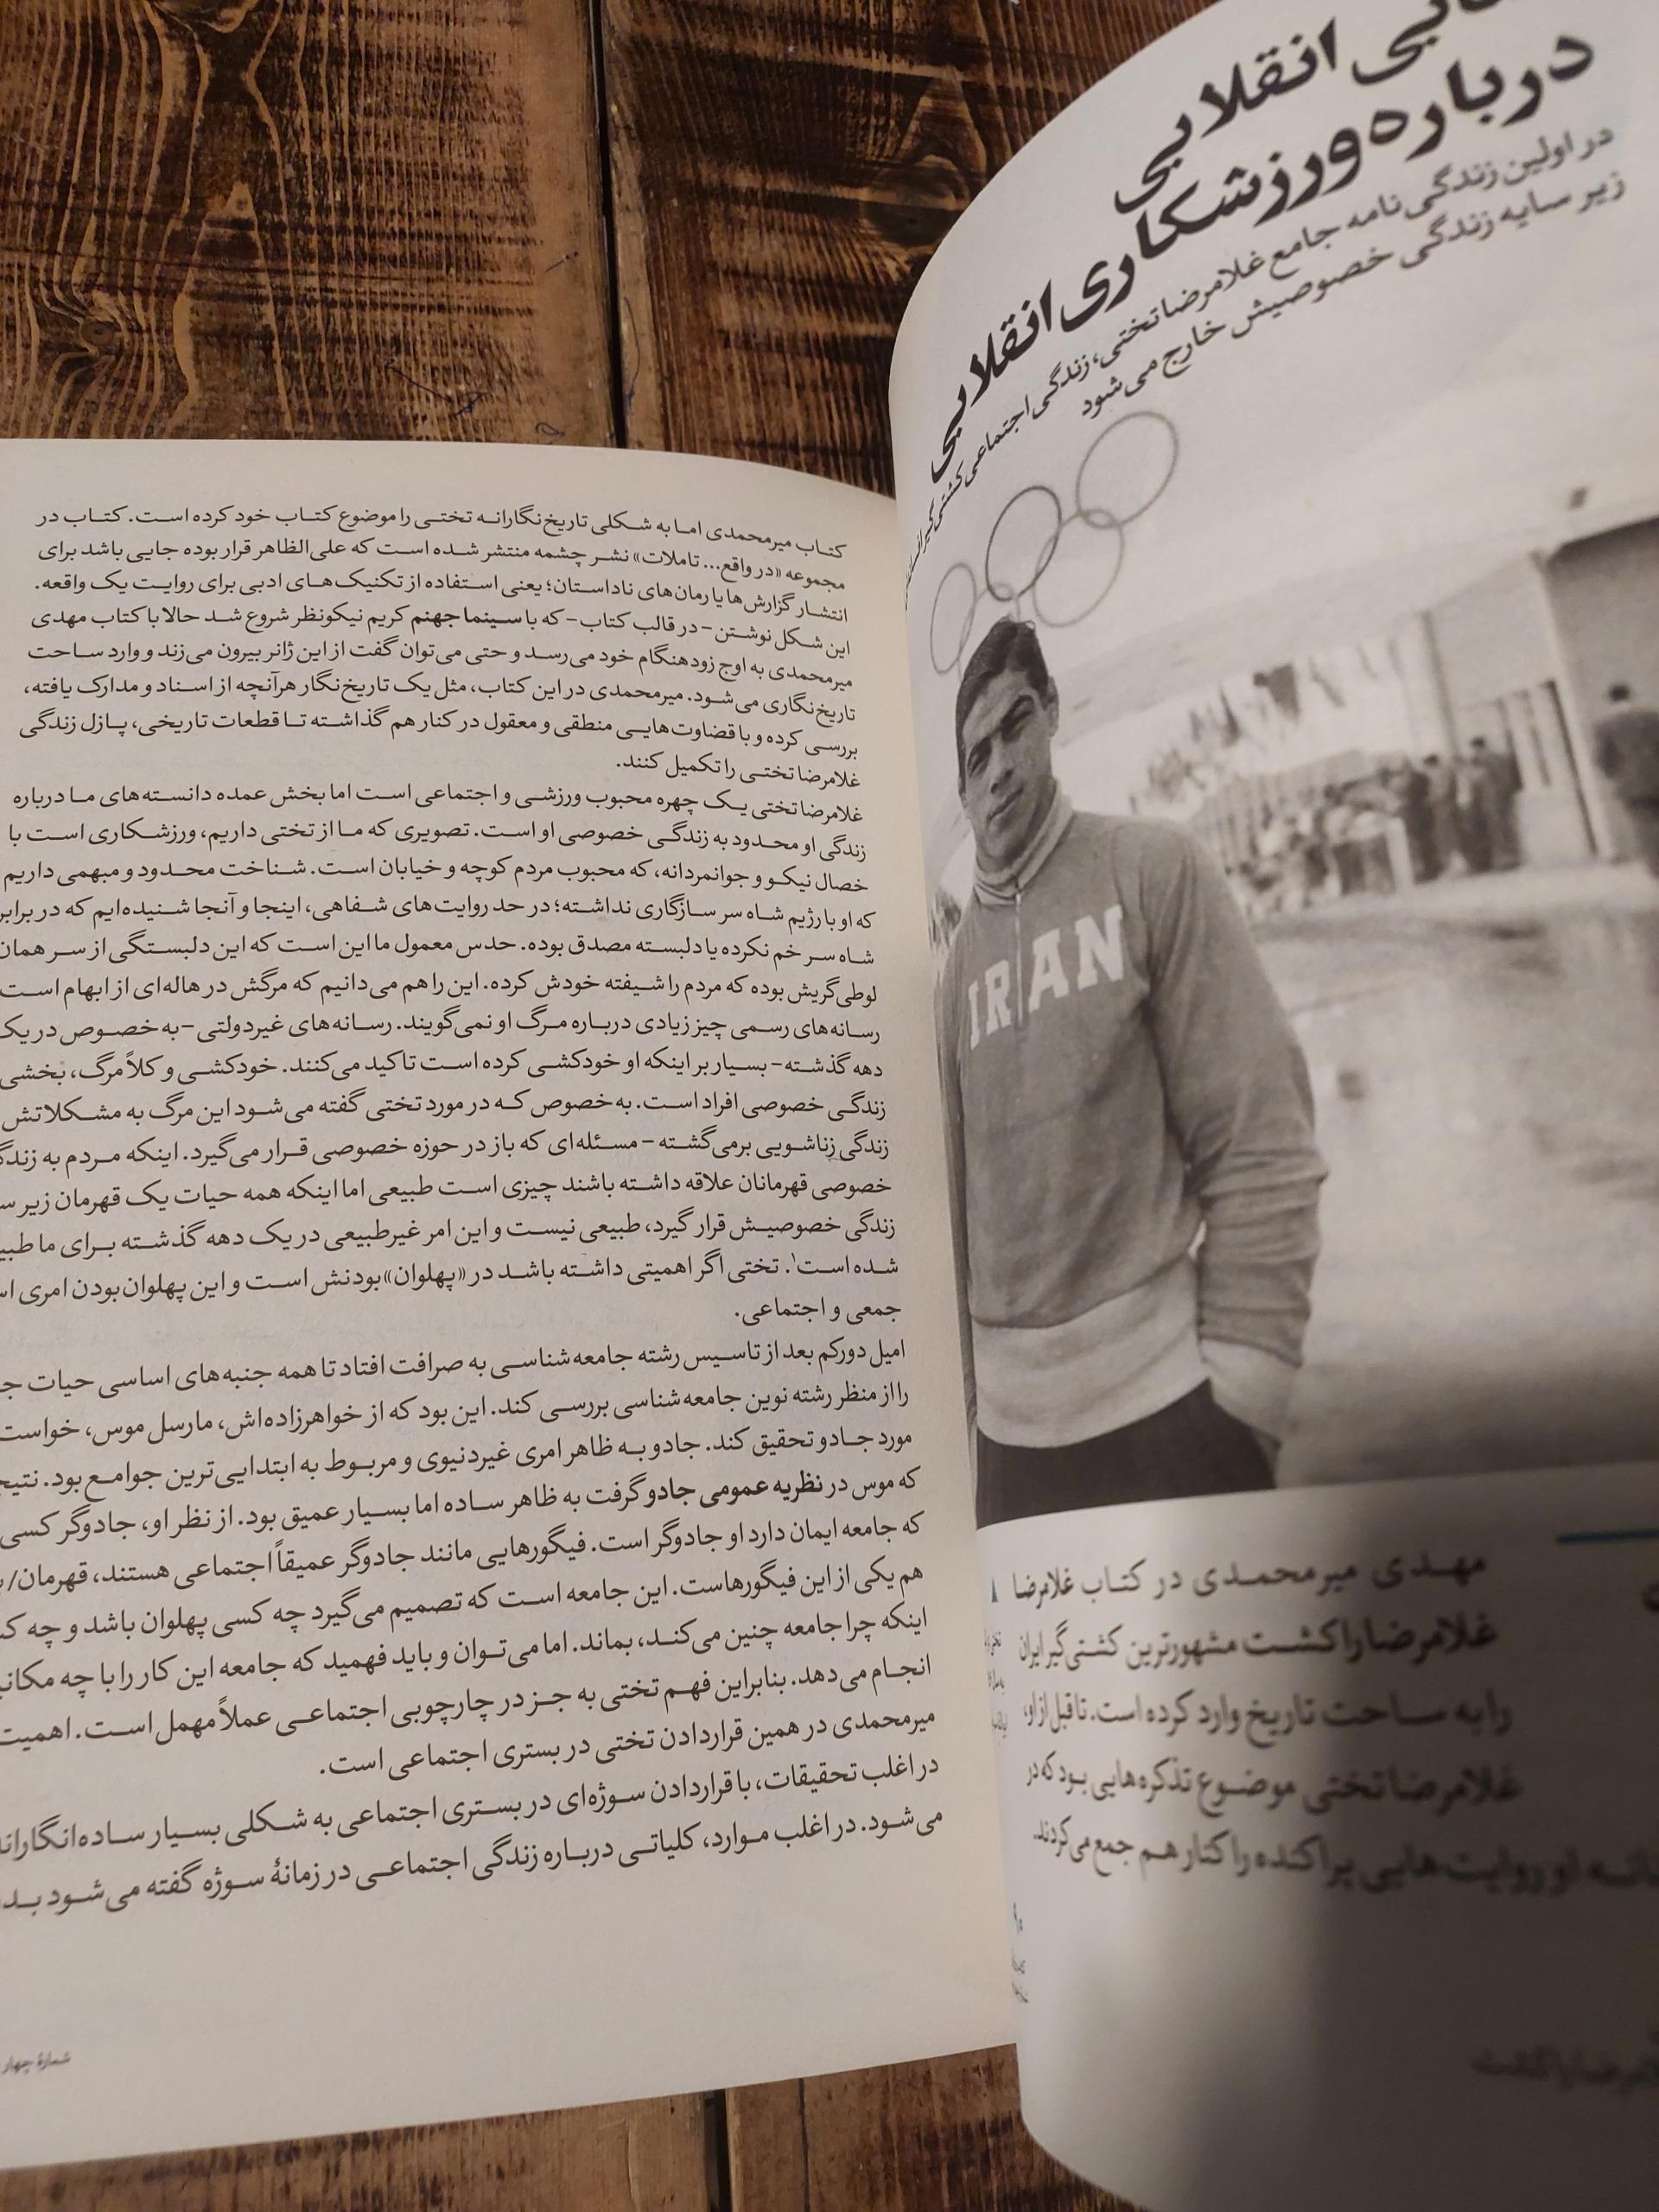 انقلابی
درباره ورزشکاری انقلابی
در اولین زندگی‌نامه جامع غلامرضا تختی، زندگی اجتماعی کشتی‌گیر
زیر سایه زندگی خصوصیش خارج می‌شود
IRAN
مهدی میرمحمدی در کتاب غلامرضا
غلامرضا را کشت مشهورترین کشتی‌گیر ایران
را به ساحت تاریخ وارد کرده است. تا قبل از او،
غلامرضا تختی موضوع تذکره‌هایی بود که در
او روایت‌هایی پراکنده را کنار هم جمع می‌کردند.
کتاب میرمحمدی اما به شکلی تاریخ‌نگارانه تختی را موضوع کتاب خود کرده است. کتاب در
مجموعه «در واقع... تاملات» نشر چشمه منتشر شده است که علی‌الظاهر قرار بوده جایی باشد برای
انتشار گزارش‌ها یا رمان‌های ناداستان؛ یعنی استفاده از تکنیک‌های ادبی برای روایت یک واقعه.
این شکل نوشتن -در قالب کتاب- که با سینما جهنم کریم نیکونظر شروع شد حالا با کتاب مهدی
میرمحمدی به اوج زودهنگام خود می‌رسد و حتی می‌توان گفت از این ژانر بیرون می‌زند و وارد ساحت
تاریخ‌نگاری می‌شود. میرمحمدی در این کتاب، مثل یک تاریخ‌نگار هرآنچه از اسناد و مدارک یافته،
بررسی کرده و با قضاوت‌هایی منطقی و معقول در کنار هم گذاشته تا قطعات تاریخی، پازل زندگی
غلامرضا تختی را تکمیل کنند.
غلامرضا تختی یک چهره محبوب ورزشی و اجتماعی است اما بخش عمده دانسته‌های ما درباره
زندگی او محدود به زندگی خصوصی او است. تصویری که ما از تختی داریم، ورزشکاری است با
خصال نیکو و جوانمردانه، که محبوب مردم کوچه و خیابان است. شناخت محدود و مبهمی داریم
که او با رژیم شاه سر سازگاری نداشته؛ در حد روایت‌های شفاهی، اینجا و آنجا شنیده‌ایم که در برابر
شاه سر خم نکرده یا دلبسته مصدق بوده. حدس معمول ما این است که این دلبستگی از سر همان
لوطی‌گریش بوده که مردم را شیفته خودش کرده. این را هم می‌دانیم که مرگش در هاله‌ای از ابهام است
رسانه‌های رسمی چیز زیادی درباره مرگ او نمی‌گویند. رسانه‌های غیردولتی -به خصوص در یک
دهه گذشته- بسیار بر اینکه او خودکشی کرده است تاکید می‌کنند. خودکشی و کلاً مرگ، بخشی
زندگی خصوصی افراد است. به خصوص که در مورد تختی گفته می‌شود این مرگ به مشکلاتش
زندگی زناشویی برمی‌گشته -مسئله‌ای که باز در حوزه خصوصی قرار می‌گیرد. اینکه مردم به
خصوصی قهرمانان علاقه داشته باشند چیزی است طبیعی اما اینکه همه حیات یک قهرمان زیر
زندگی خصوصیش قرار گیرد، طبیعی نیست و این امر غیرطبیعی در یک دهه گذشته برای ما
شده است۱. تختی اگر اهمیتی داشته باشد در «پهلوان» بودنش است و این پهلوان‌بودن امری
جمعی و اجتماعی.
امیل دورکم بعد از تاسیس رشته جامعه‌شناسی به صرافت افتاد تا همه جنبه‌های اساسی حیات
را از منظر رشته نوین جامعه‌شناسی بررسی کند. این بود که از خواهرزاده‌اش، مارسل موس، خواست
مورد جادو تحقیق کند. جادو به ظاهر امری غیردنیوی و مربوط به ابتدایی‌ترین جوامع بود.
که موس در نظریه عمومی جادو گرفت به ظاهر ساده اما بسیار عمیق بود. از نظر او، جادوگر کسی
که جامعه ایمان دارد او جادوگر است. فیگورهایی مانند جادوگر عمیقاً اجتماعی هستند، قهرمان/
هم یکی از این فیگورهاست. این جامعه است که تصمیم می‌گیرد چه کسی پهلوان باشد و چه
اینکه چرا جامعه چنین می‌کند، بماند. اما می‌توان و باید فهمید که جامعه این کار را با چه
انجام می‌دهد. بنابراین فهم تختی به جز در چارچوبی اجتماعی عملاً مهمل است. اهمیت
میرمحمدی در همین قراردادن تختی در بستری اجتماعی است.
در اغلب تحقیقات، با قراردادن سوژه‌ای در بستری اجتماعی به شکلی بسیار ساده‌انگارانه
می‌شود. در اغلب موارد، کلیاتی درباره زندگی اجتماعی در زمانهٔ سوژه گفته می‌شود
شمارهٔ چهار